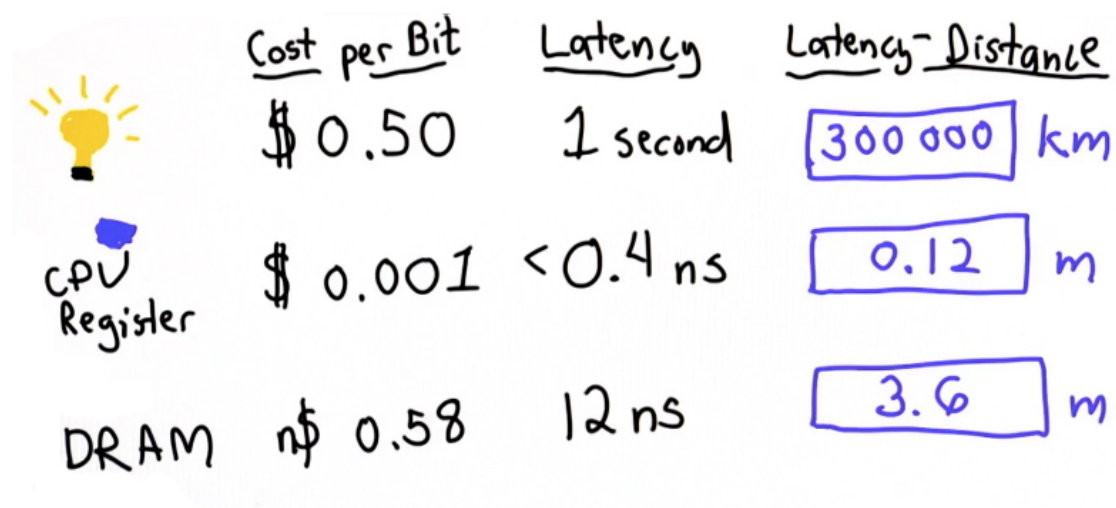 Cost per Bit Latency Latency-Distance
$ 0.50 1 second 300 000 km
CPU
Register
$ 0.001 <0.4 ns 0.12 m
DRAM n$ 0.58 12 ns 3.6 m